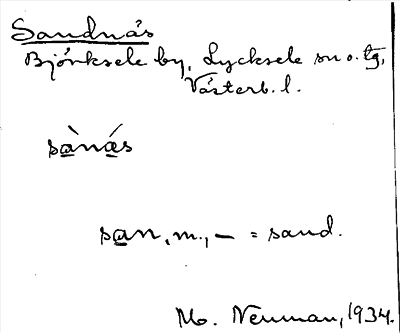 Sandnäs
Björksele by, Lycksele sn o. tg,
Västerb. l.
sànǽs
san, m., – = sand.
Mo. Neuman, 1934.